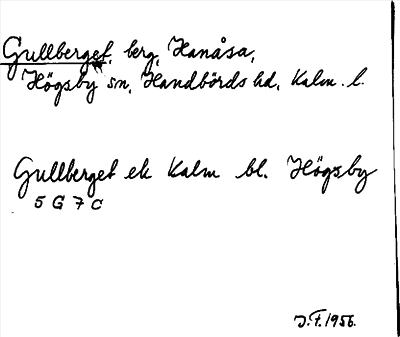 Gullberget, berg, Hanåsa,
Högsby sn, Handbörds hd, Kalm. l.
Gullberget ek Kalm bl. Högsby
5 G 7 c
J.F. 1956.